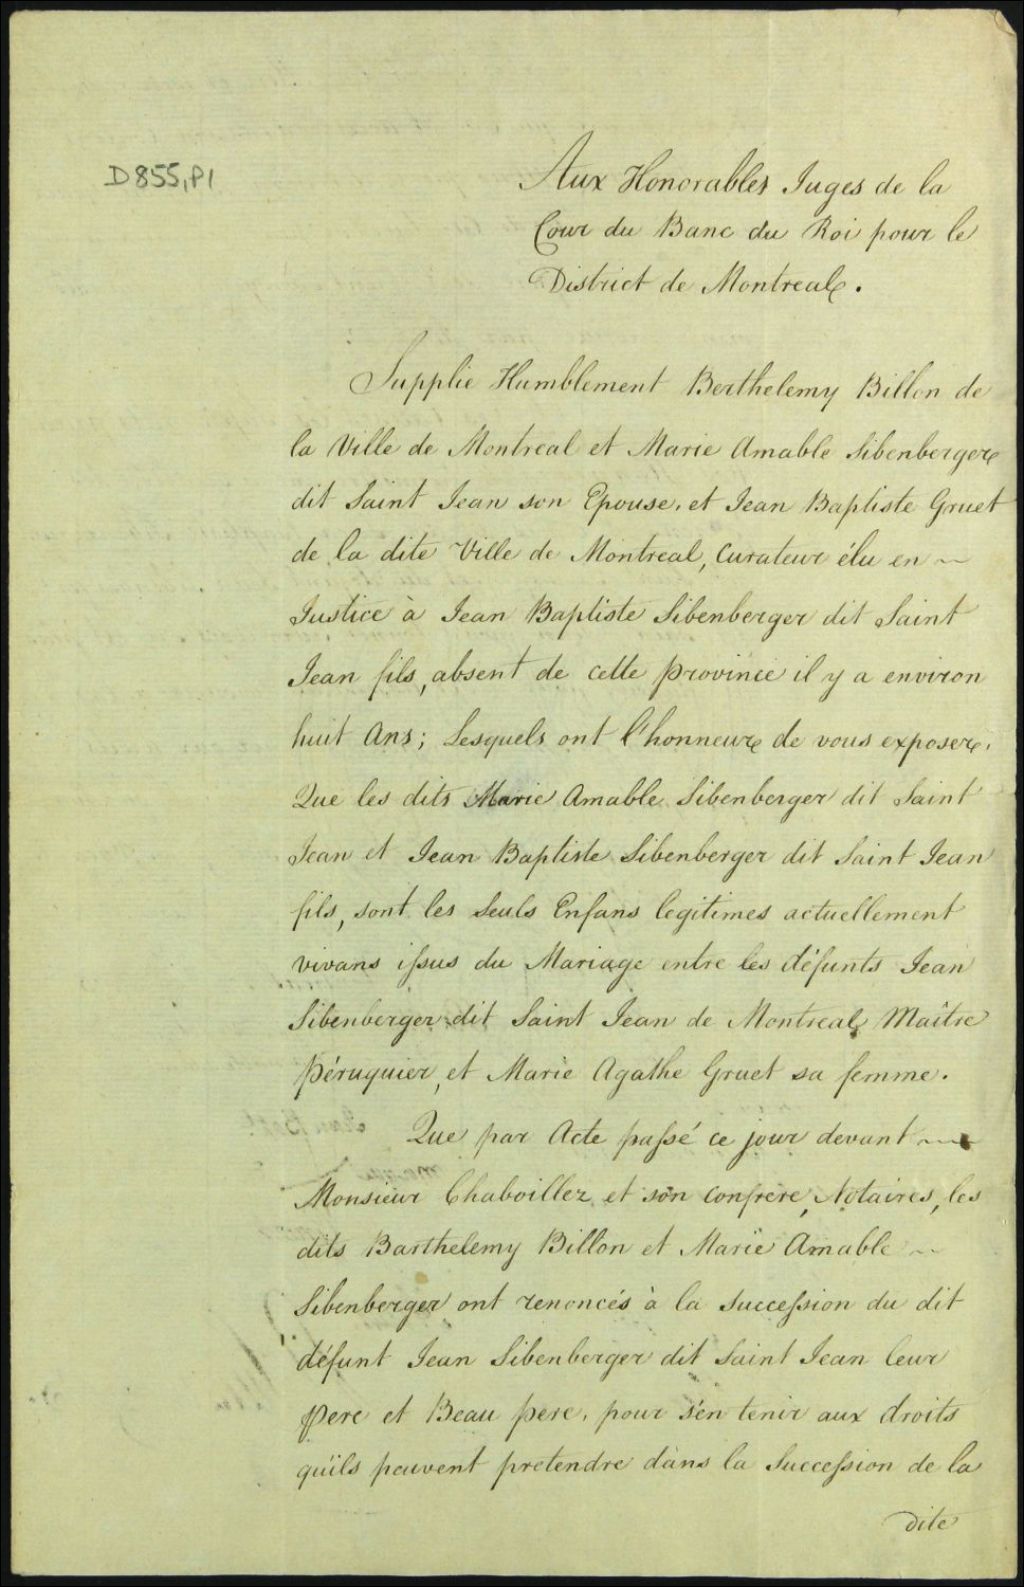 D855,P1
Aux Honorables Juges de la
Cour du Banc du Roi pour le
District de Montreal.
Supplie Humblement Berthelemy Billon de
la Ville de Montreal et Marie Amable Sibenberger
dit Saint Jean son Epouse, et Jean Baptiste Gruet
de la dite Ville de Montreal, Curateur élu en ~
Justice à Jean Baptiste Sibenberger dit Saint
Jean fils, absent de cette province il y a environ
huit Ans; Lesquels ont l'honneur de vous exposer,
Que les dits Marie Amable Sibenberger dit Saint
Jean et Jean Baptiste Sibenberger dit Saint Jean
fils, sont les Seuls Enfans legitimes actuellement
vivans issus du Mariage entre les défunts Jean
Sibenberger dit Saint Jean de Montreal, Maître
péruquier, et Marie Agathe Gruet sa femme.
Que par Acte passé ce jour devant ~
Monsieur Chaboillez et son Confrere, Notaires, les
dits Barthelemy Billon et Marie Amable ~
Sibenberger ont renoncés à la Succession du dit
défunt Jean Sibenberger dit Saint Jean leur
Pere et Beau pere, pour s'en tenir aux droits
qu'ils peuvent pretendre dans la Succession de la
dite